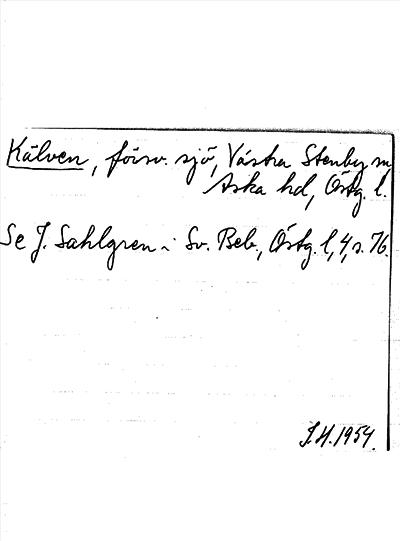 Kälven, försv. sjö, Västra Stenby sn
Aska hd, Östg. l.
Se J. Sahlgren i Sv. Beb., Östg. l, 4, s. 76.
J.H. 1954.